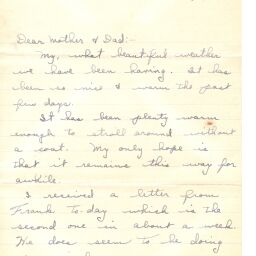 Dear Mother & Dad:-
My, what beautiful weather
we have been having. It has
been so nice & warm the past
few days.
It has been plenty warm
enough to stroll around without
a coat. My only hope is
that it remains this way for
awhile.
I received a letter from
Frank to-day which is the
second one in about a week.
He does seem to be doing